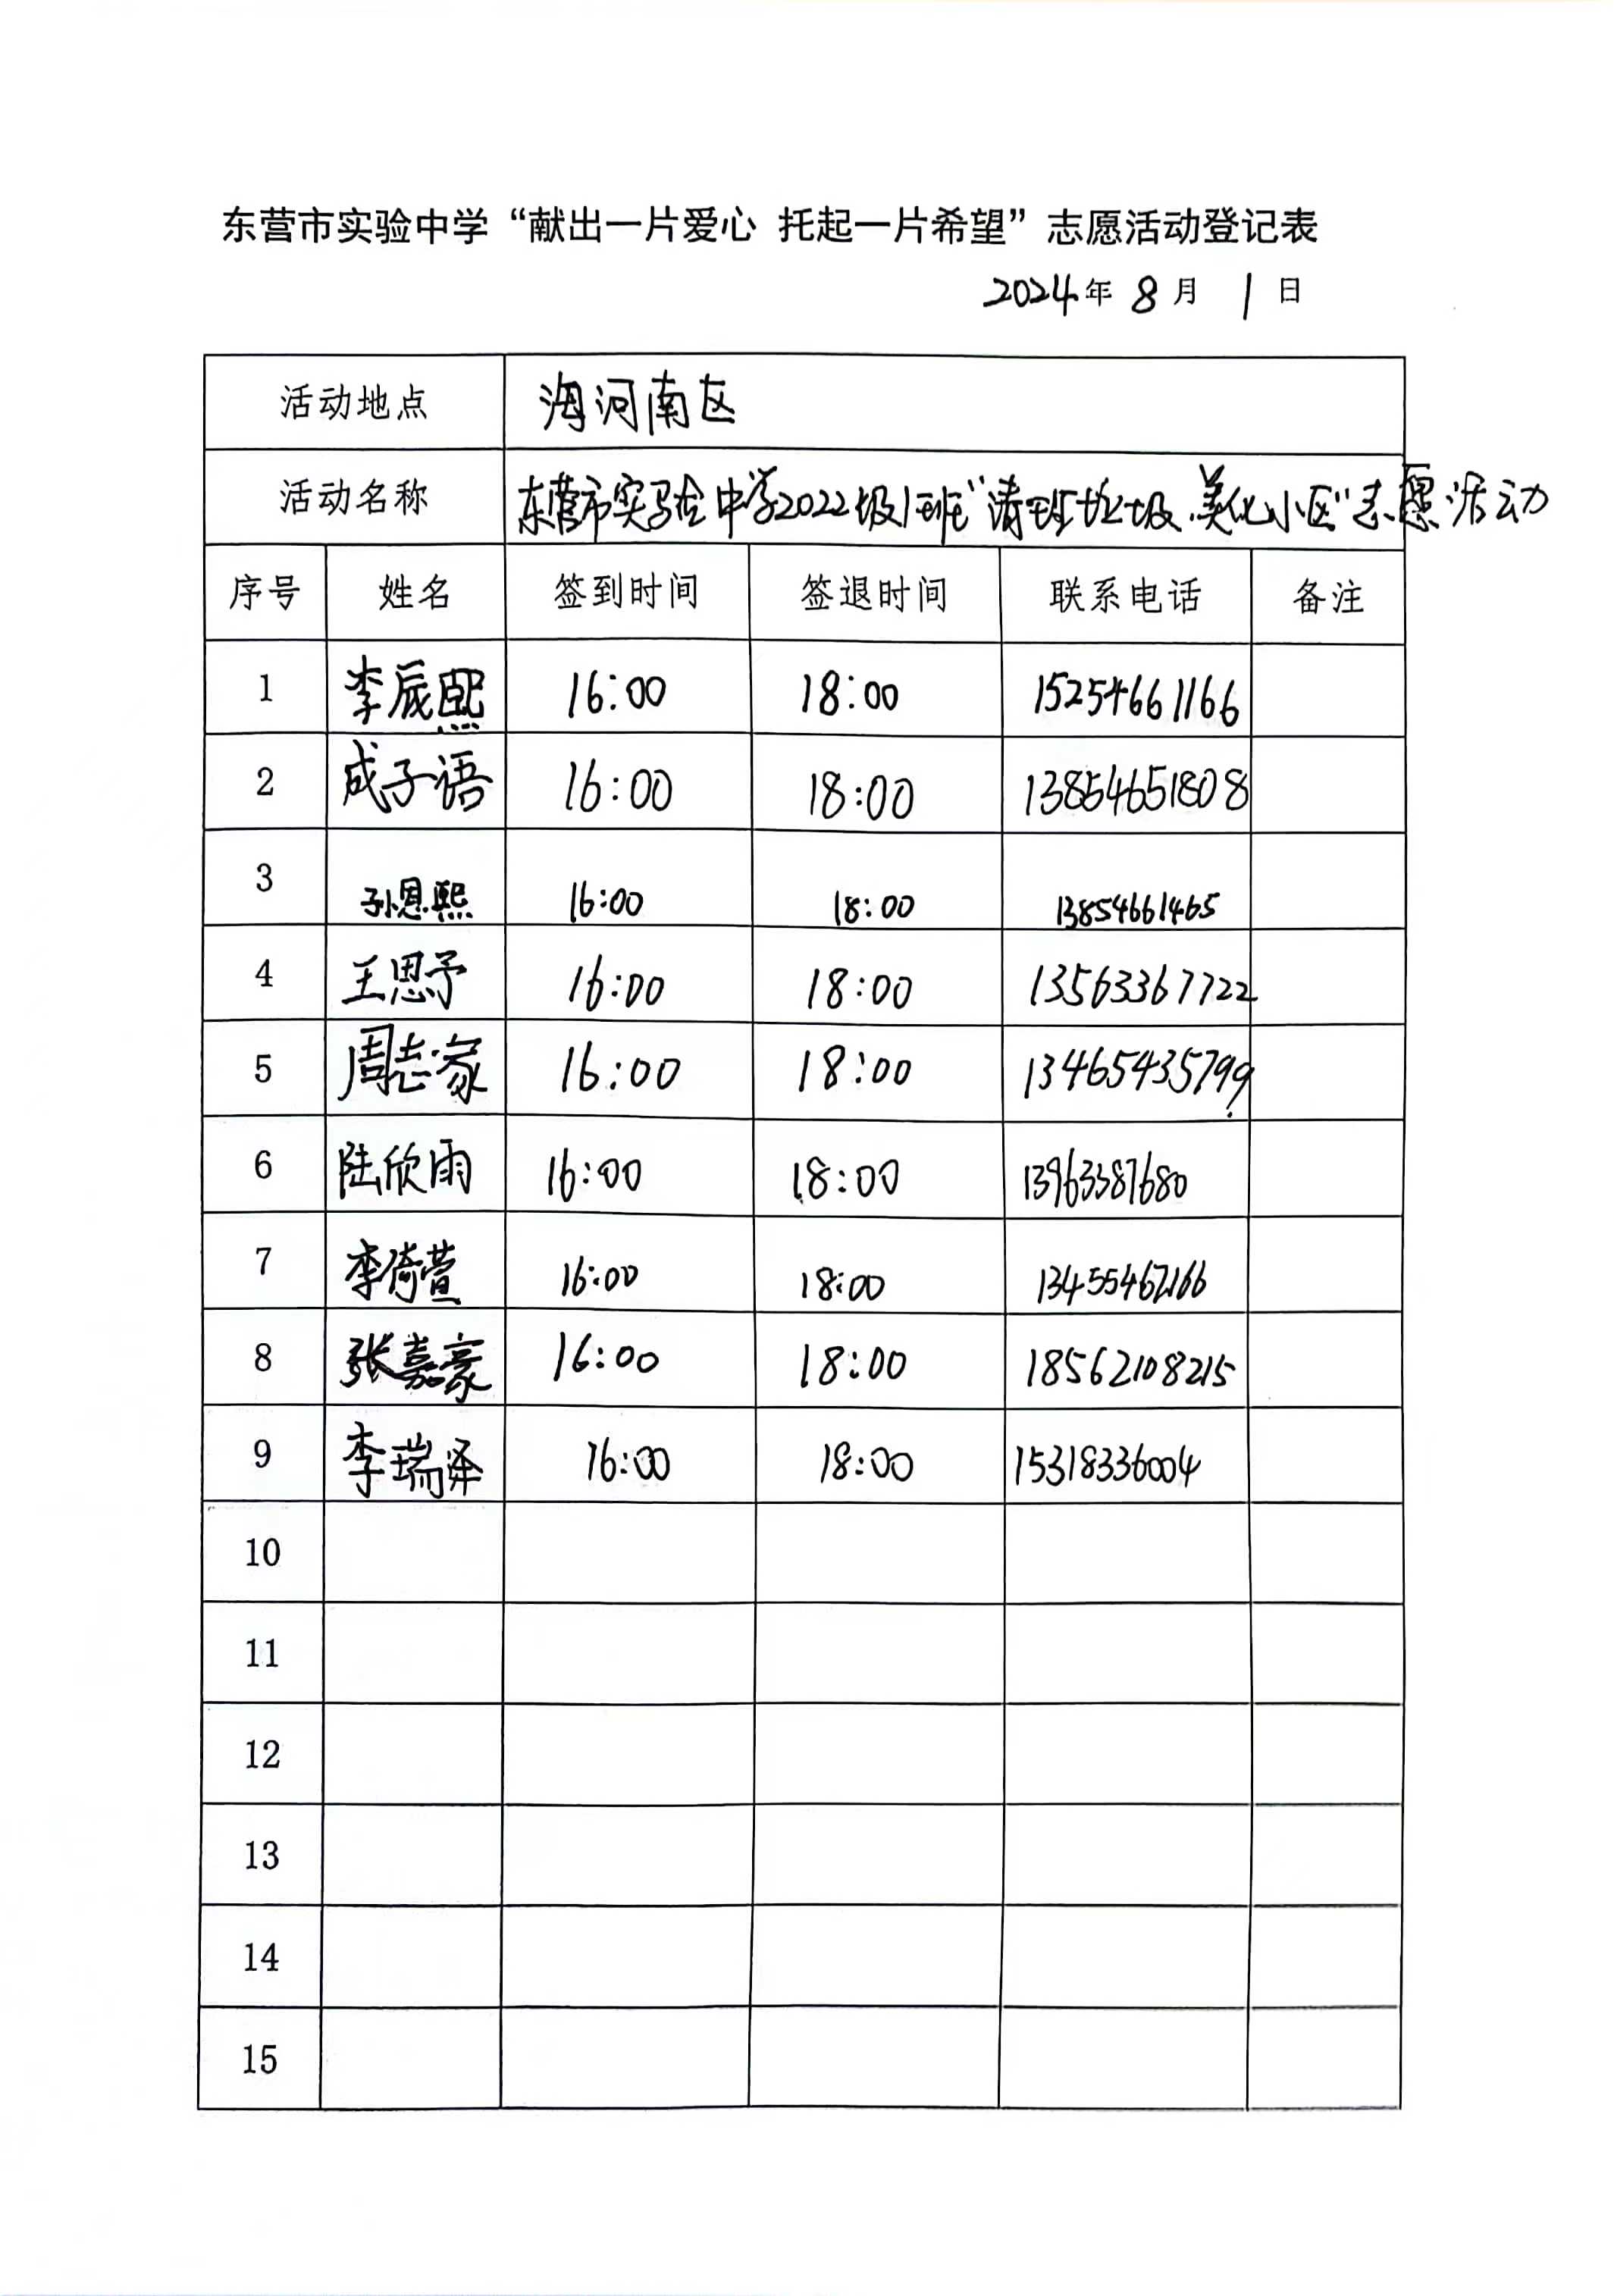 东营市实验中学“献出一片爱心 托起一片希望”志愿活动登记表
2024年 8 月 1 日
活动地点 海河南区
活动名称 东营市实验中学2022级1班“清理垃圾、美化小区”志愿活动
序号 姓名 签到时间 签退时间 联系电话 备注
1 李辰熙 16:00 18:00 15254661166
2 成子语 16:00 18:00 13854651808
3 孙恩熙 16:00 18:00 13854661465
4 王思予 16:00 18:00 13563367722
5 周志豪 16:00 18:00 13465435799
6 陆欣雨 16:00 18:00 13963387680
7 李倚萱 16:00 18:00 13455462166
8 张嘉豪 16:00 18:00 18562108215
9 李瑞泽 16:00 18:00 15318336004
10
11
12
13
14
15